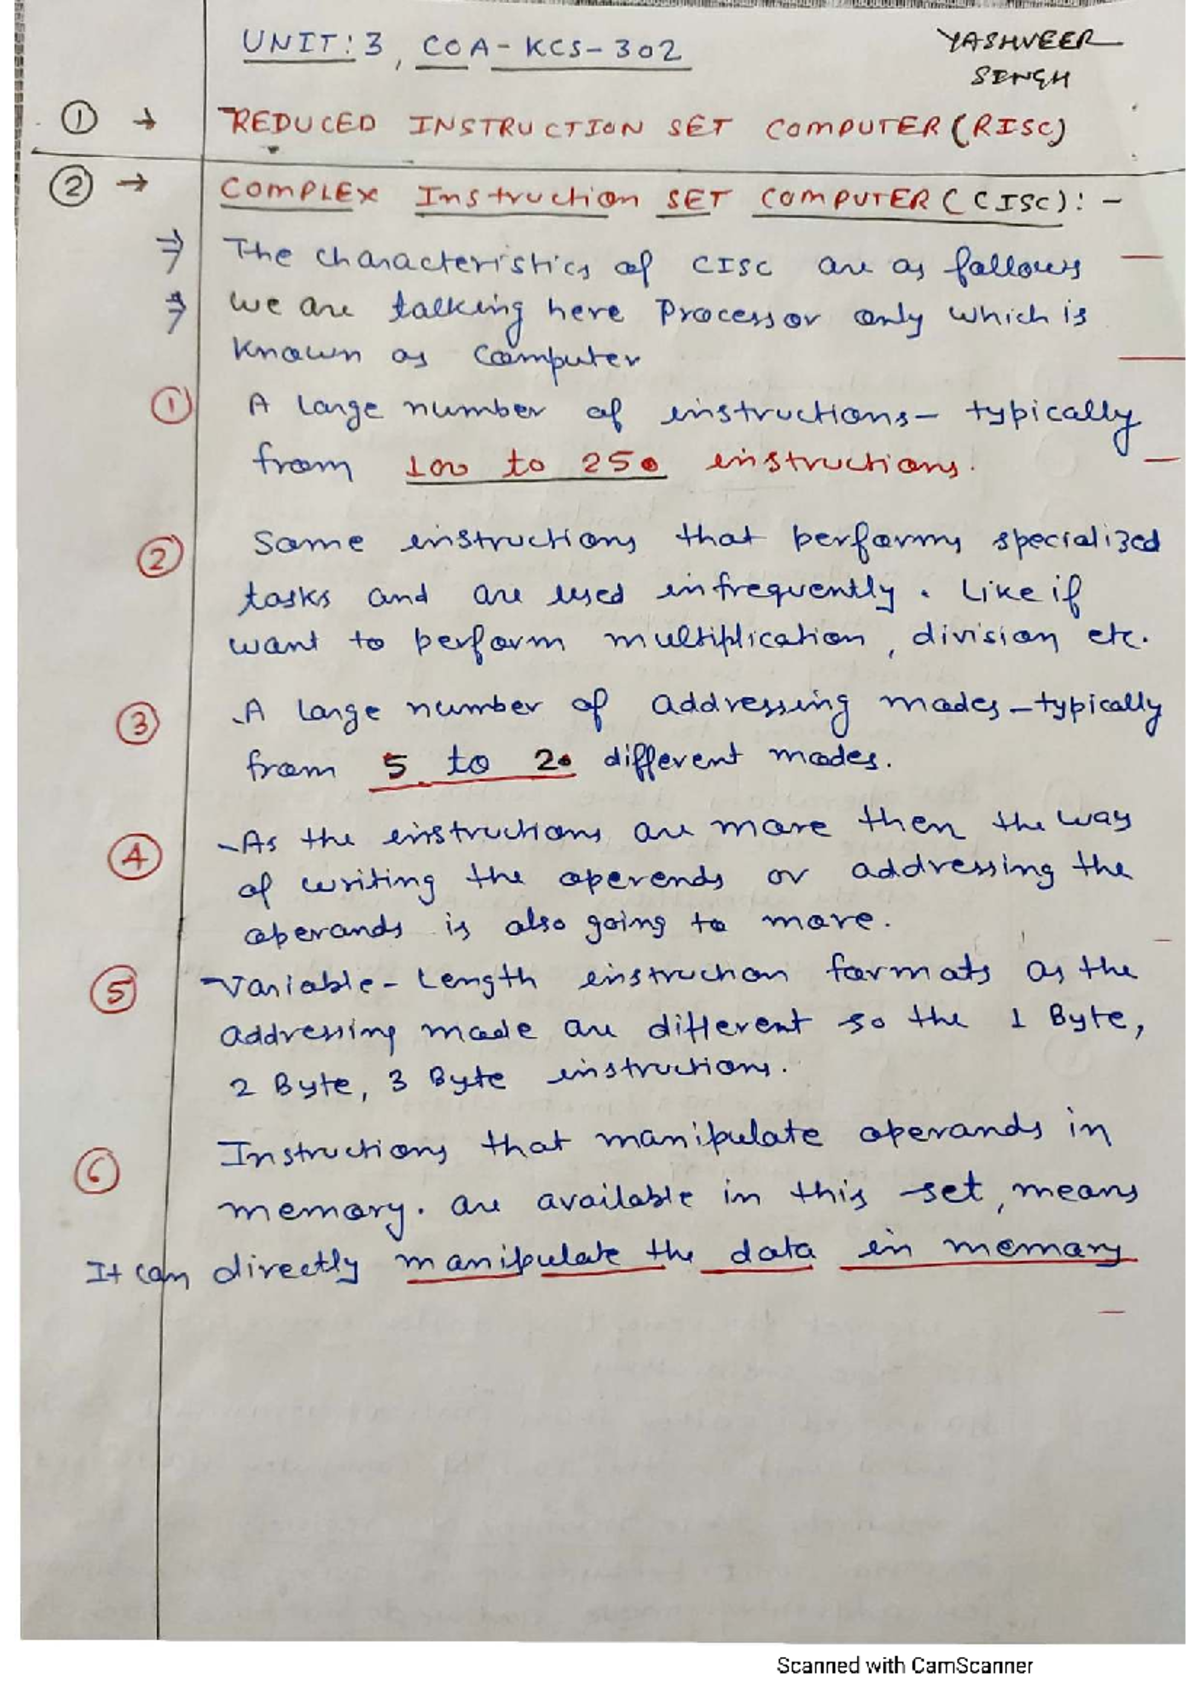 UNIT: 3, COA- KCS-302
YASHVEER
SINGH
① → REDUCED INSTRUCTION SET COMPUTER (RISC)
② → COMPLEX Instruction SET COMPUTER ( CISC): -
⇒ The characteristics of CISC are as follows
⇒ we are talking here Processor only which is
known as Computer
① A large number of instructions- typically
from 100 to 250 instructions.
② Some instructions that performs specialized
tasks and are used infrequently. Like if
want to perform multiplication, division etc.
③ A large number of addressing modes - typically
from 5 to 20 different modes.
④ -As the instructions are more then the way
of writing the operends or addressing the
operands is also going to more.
⑤ -Variable- Length instruction formats as the
addressing mode are different so the 1 Byte,
2 Byte, 3 Byte instructions.
⑥ Instructions that manipulate operands in
memory. are available in this set, means
It can directly manipulate the data in memory
Scanned with CamScanner